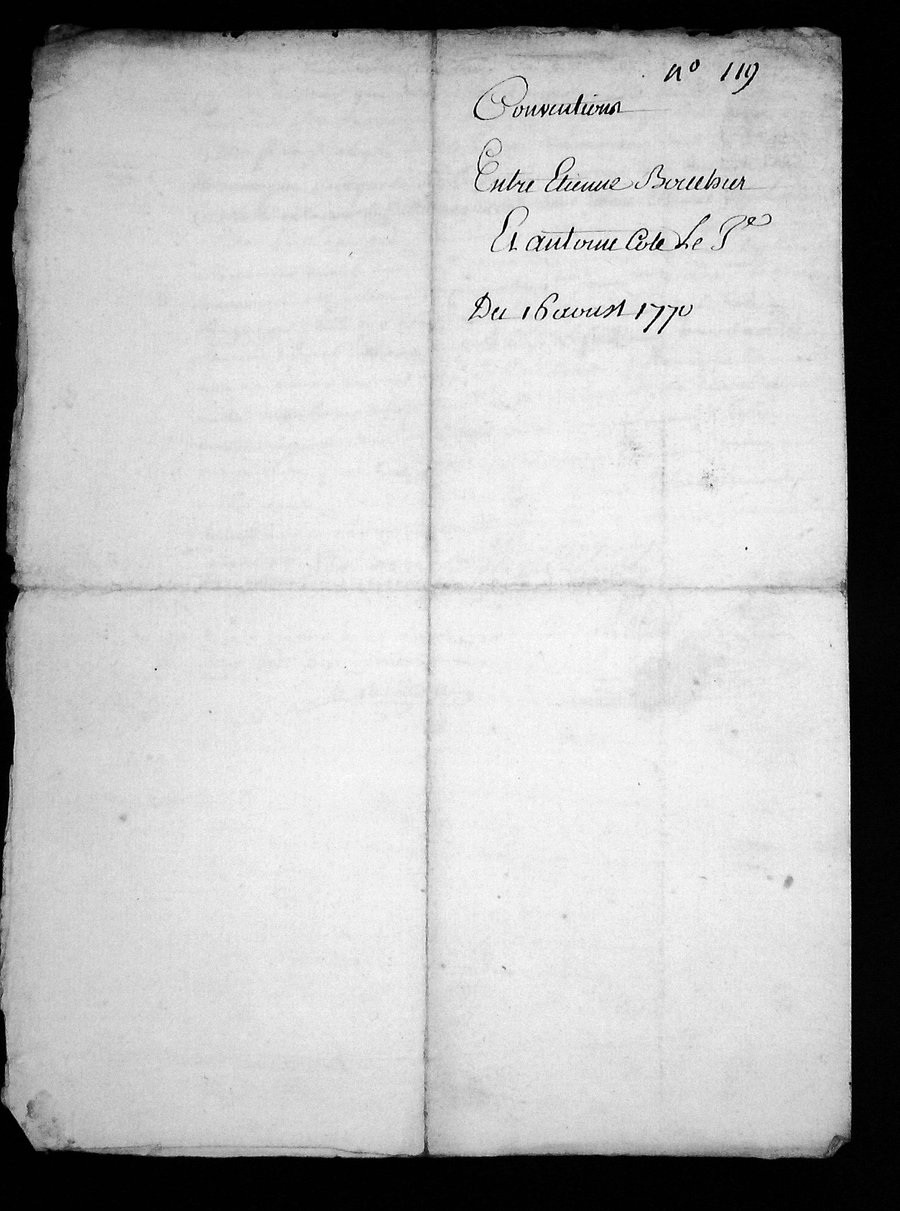 n° 119
Conventions
Entre Etienne Bouchier
Et antoine Cote Le Pe
Du 16 aoust 1770